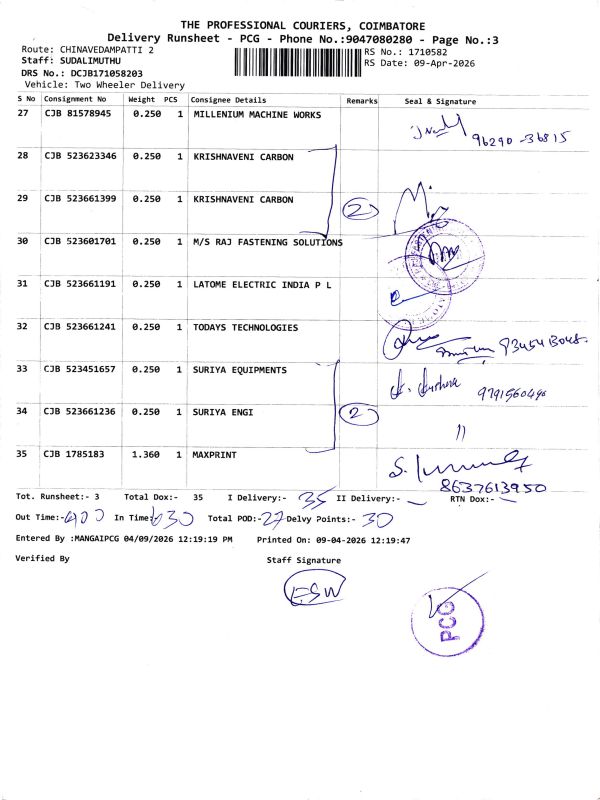 THE PROFESSIONAL COURIERS, COIMBATORE
Delivery Runsheet - PCG - Phone No.:9047080280 - Page No.:3
Route: CHINAVEDAMPATTI 2 RS No.: 1710582
Staff: SUDALIMUTHU RS Date: 09-Apr-2026
DRS No.: DCJB171058203
Vehicle: Two Wheeler Delivery
S No Consignment No Weight PCS Consignee Details Remarks Seal & Signature
27 CJB 81578945 0.250 1 MILLENIUM MACHINE WORKS
96290-36815
28 CJB 523623346 0.250 1 KRISHNAVENI CARBON
29 CJB 523661399 0.250 1 KRISHNAVENI CARBON 2
30 CJB 523601701 0.250 1 M/S RAJ FASTENING SOLUTIONS
31 CJB 523661191 0.250 1 LATOME ELECTRIC INDIA P L
32 CJB 523661241 0.250 1 TODAYS TECHNOLOGIES
33 CJB 523451657 0.250 1 SURIYA EQUIPMENTS
34 CJB 523661236 0.250 1 SURIYA ENGI 2 11
35 CJB 1785183 1.360 1 MAXPRINT
8637613950
Tot. Runsheet:- 3 Total Dox:- 35 I Delivery:- 35 II Delivery:- - RTN Dox:- -
Out Time:- In Time: 630 Total POD:- 27 Delvy Points:- 30
Entered By :MANGAIPCG 04/09/2026 12:19:19 PM Printed On: 09-04-2026 12:19:47
Verified By Staff Signature
ESW
PCG